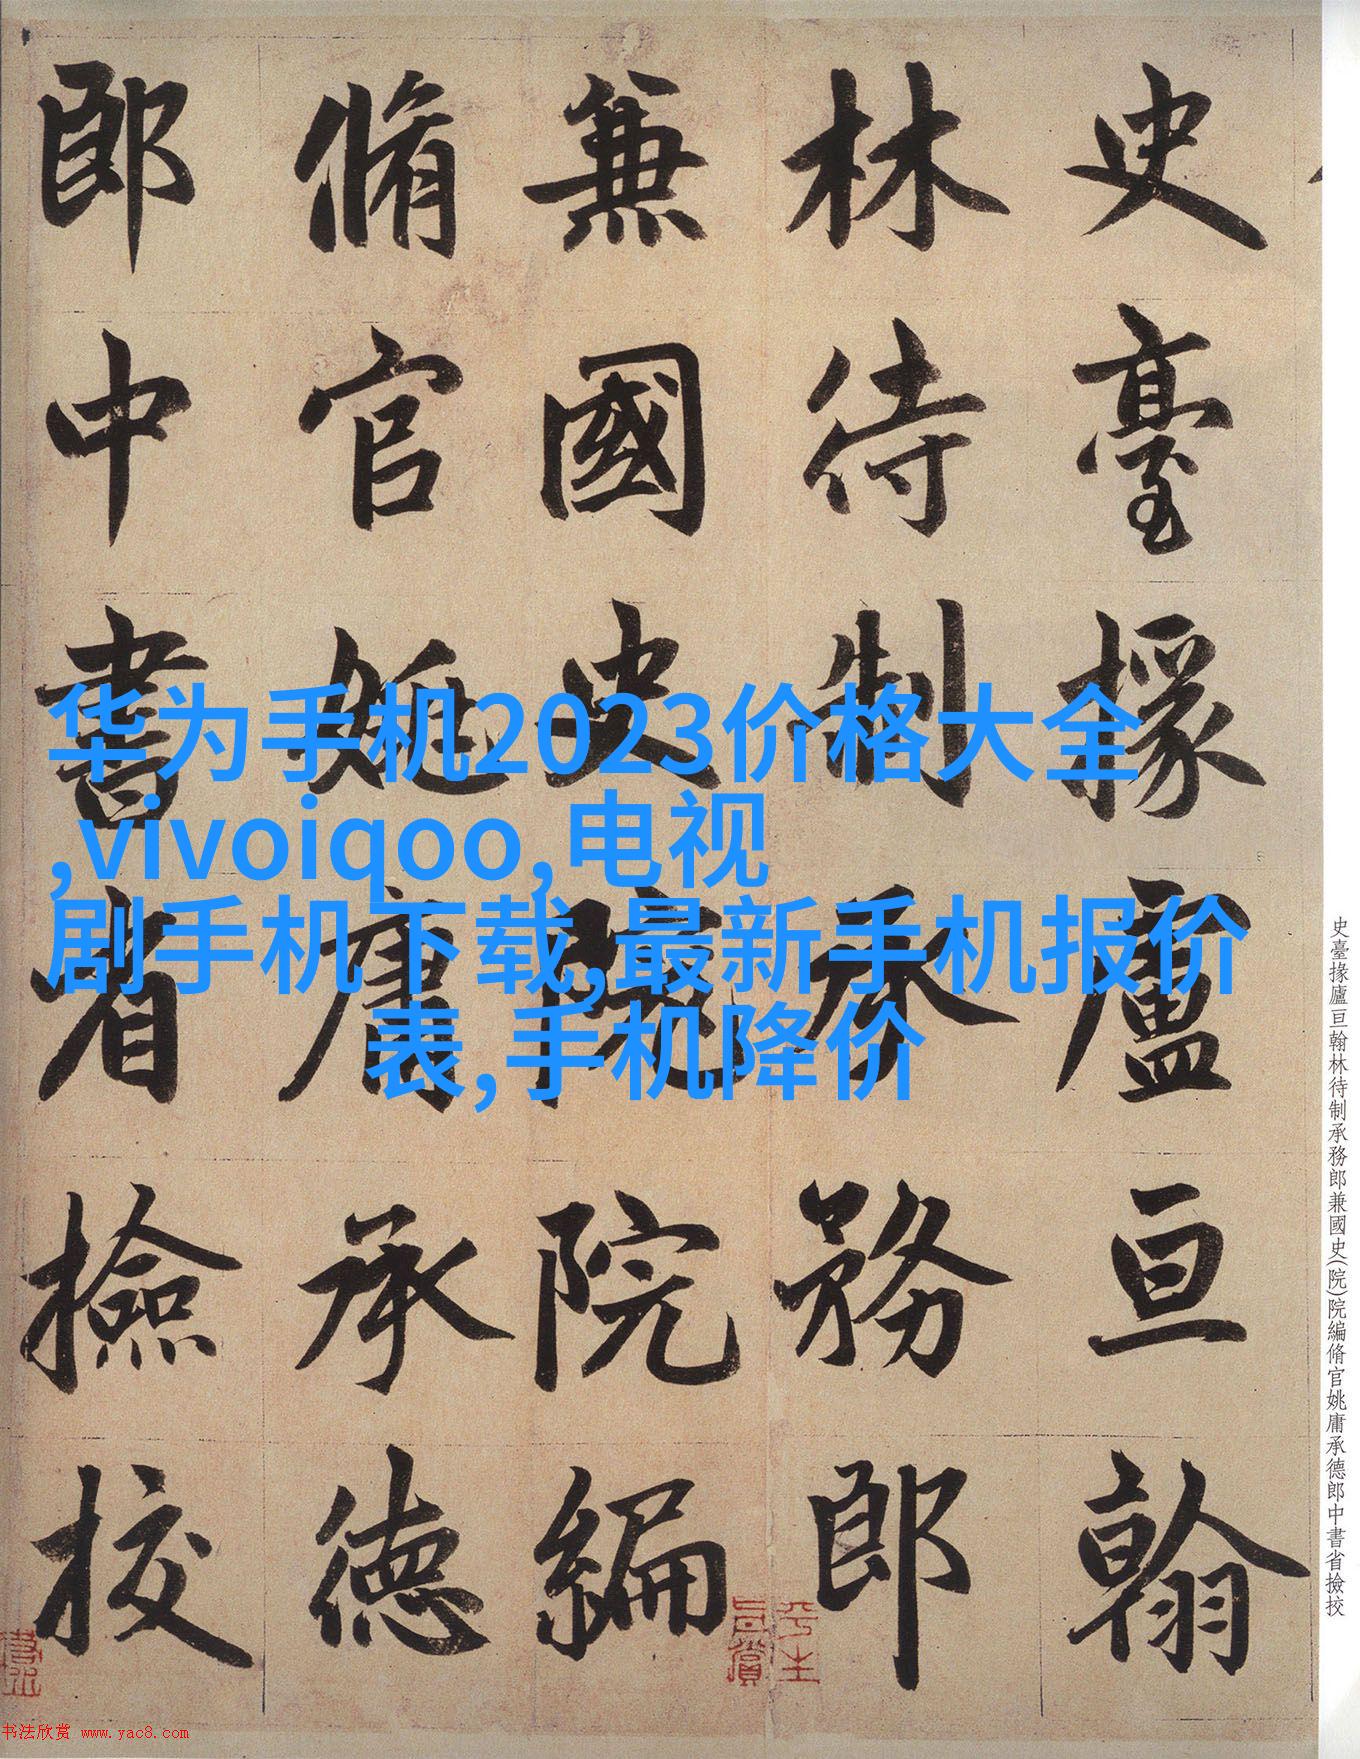 史臺掾盧亘翰
林待制承務郎
兼國史院院編
脩官姚庸承德
郎中書省撿挍
华为手机2023价格大全
,vivoiqoo,电视
剧手机下载,最新手机报价
表,手机降价
史臺掾廬亘翰林待制承務郎兼國史(院)院編脩官姚庸承德郎中書省撿挍
书法欣赏 www.yac8.com